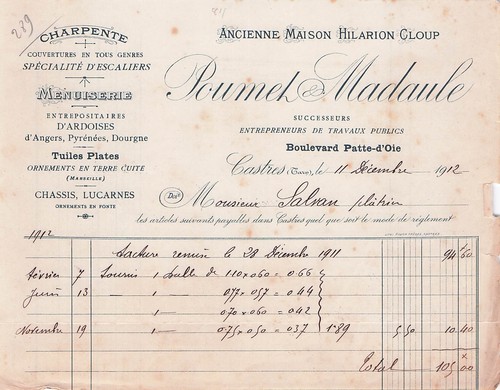 289
CHARPENTE
COUVERTURES EN TOUS GENRES
SPÉCIALITÉ D'ESCALIERS
MENUISERIE
ENTREPOSITAIRES
D'ARDOISES
d'Angers, Pyrénées, Dourgne
Tuiles Plates
ORNEMENTS EN TERRE CUITE
(MARSEILLE)
CHASSIS, LUCARNES
ORNEMENTS EN FONTE
ANCIENNE MAISON HILARION CLOUP
Poumet & Madaule
SUCCESSEURS
ENTREPRENEURS DE TRAVAUX PUBLICS
Boulevard Patte-d'Oie
Castres (Tarn) le 11 Décembre 1912
Doit Monsieur Salvan plâtrier
les articles suivants payables dans Castres quel que soit le mode de règlement
1912
facture remise le 28 Décembre 1911 94 60
février 7 fourni 1 dalle de 110 x 060 = 0.66
Juin 13 — 1 — 077 x 057 = 0.44
1 — 070 x 060 = 0.42
Novembre 19 1 — 075 x 050 = 037 1.89 5.50 10.40
Total 105 00